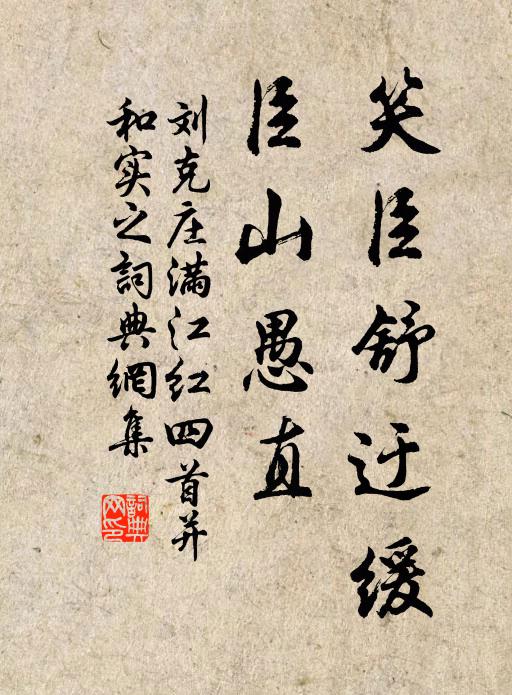 笑臣舒迂缓
臣山愚直
刘克庄满江红四首并
和实之词典網集
詞典
网印